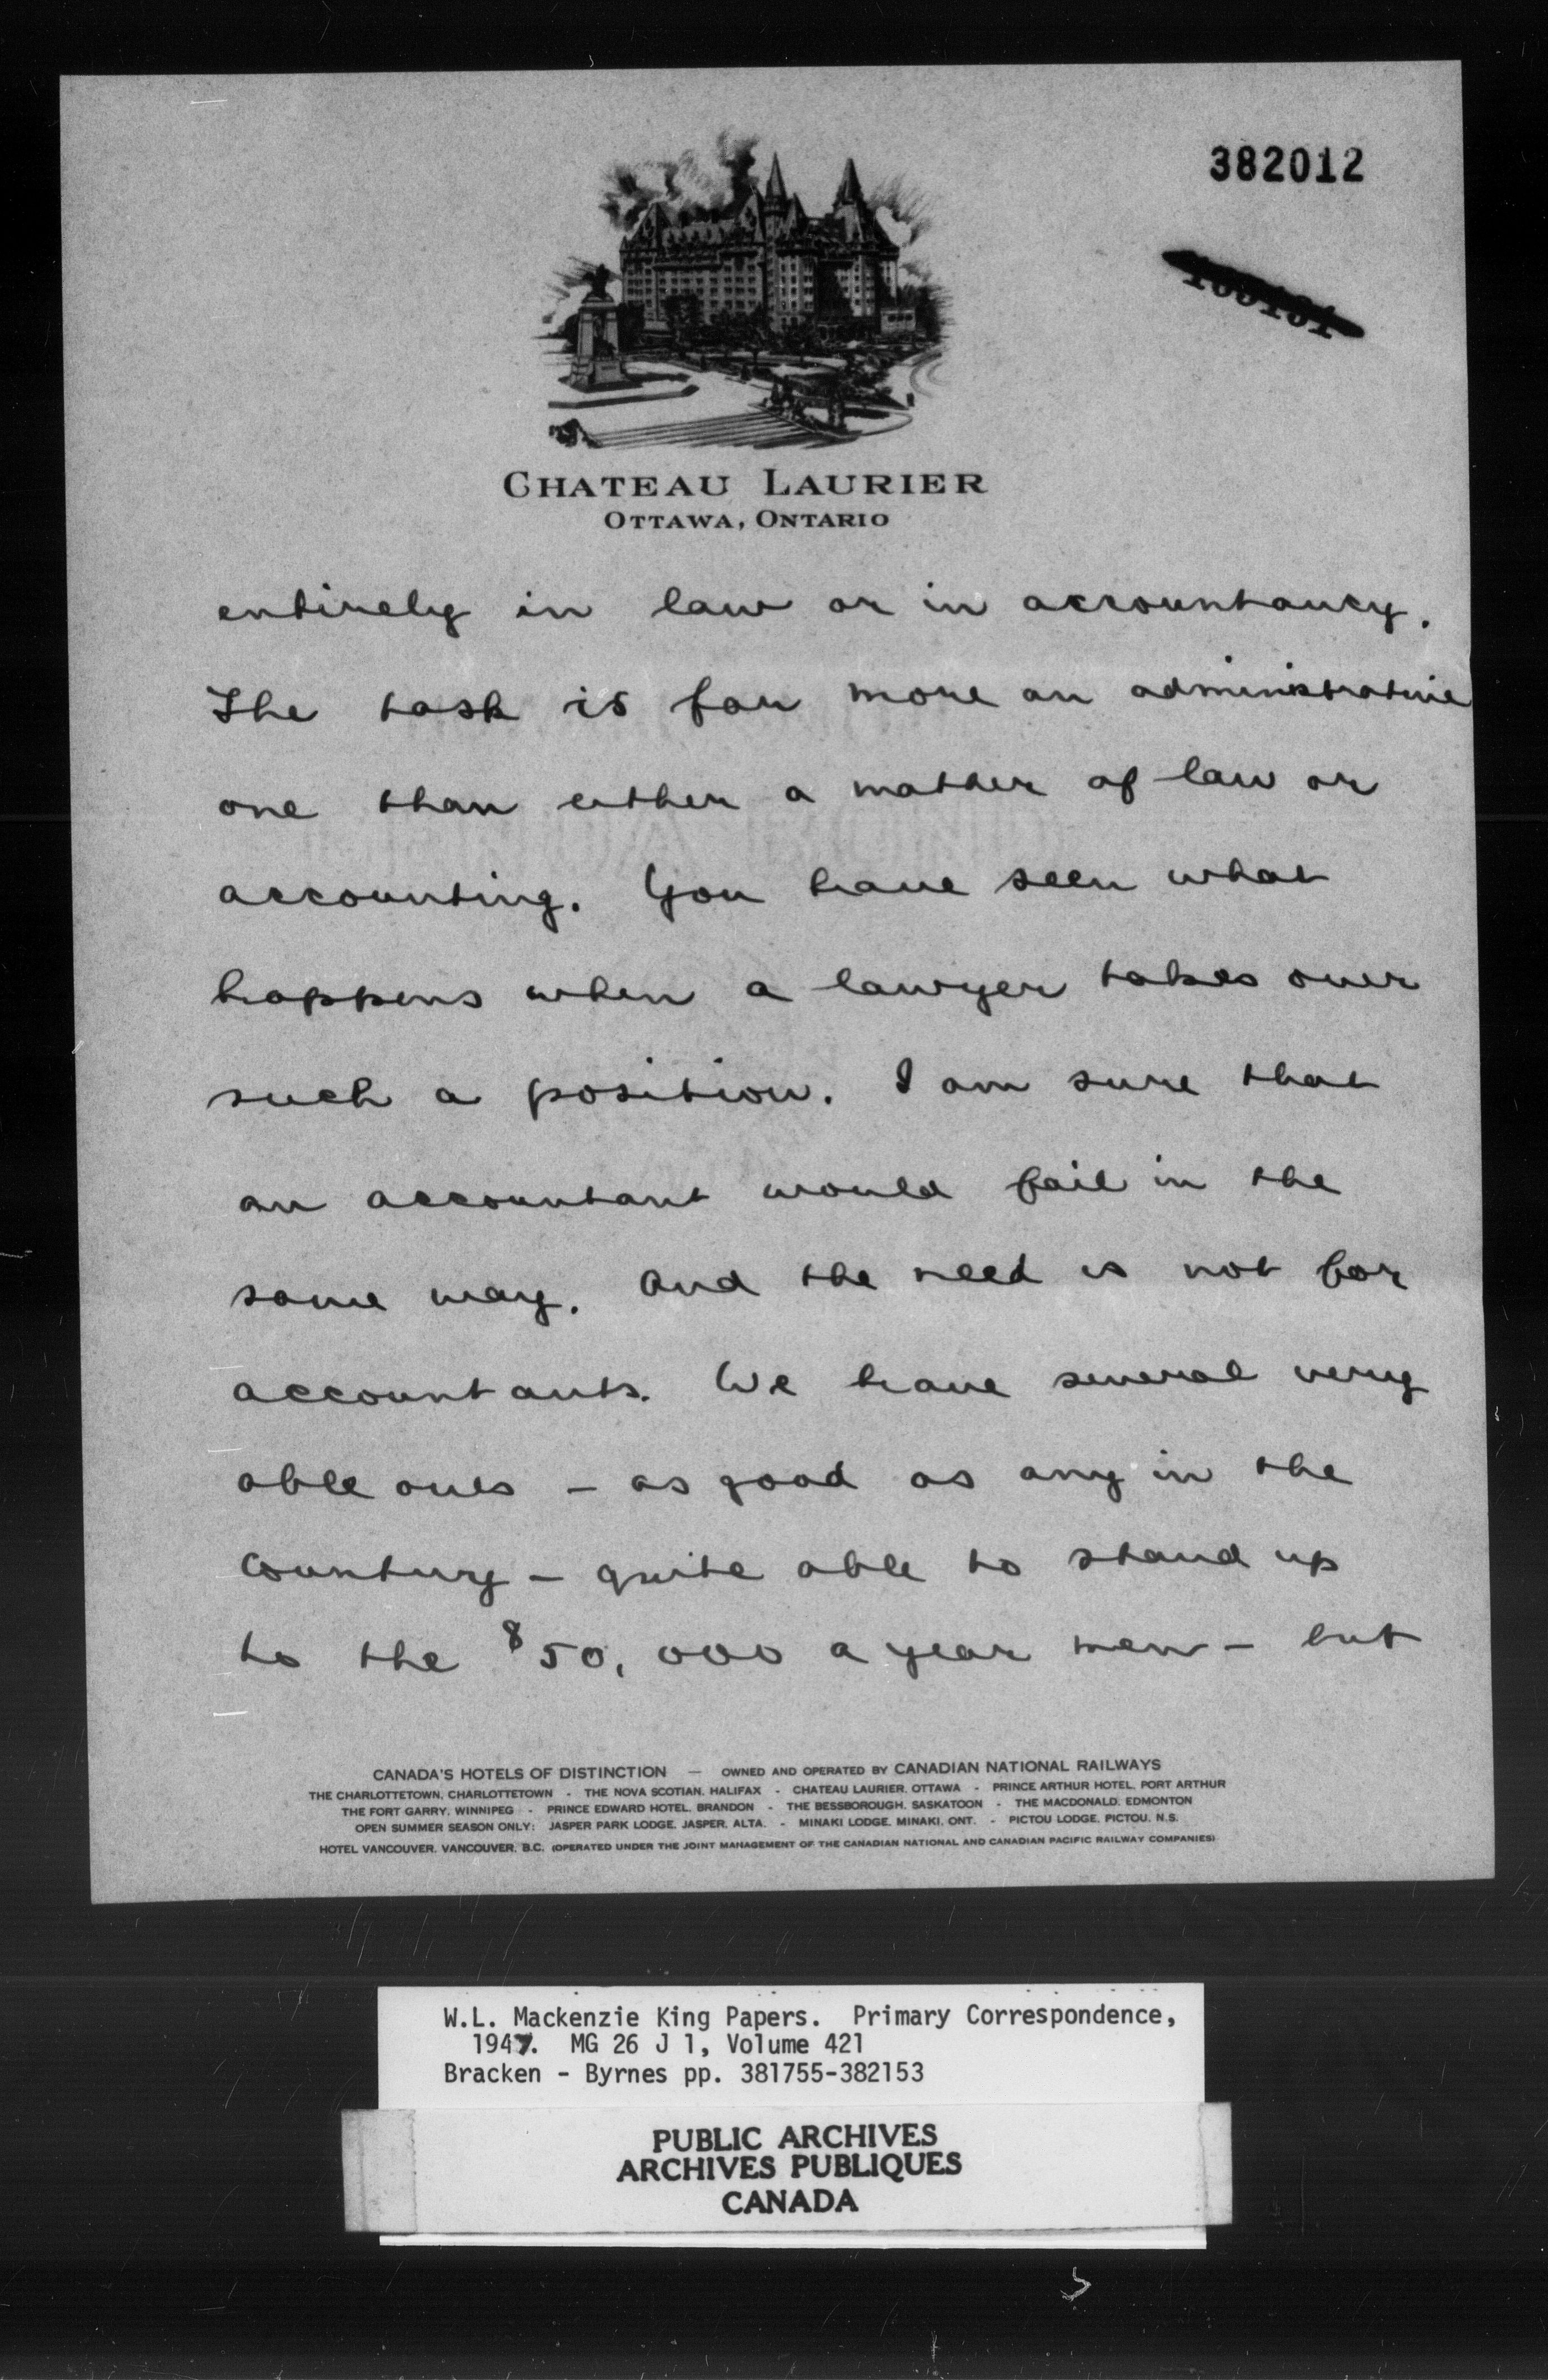 382012
CHATEAU LAURIER
OTTAWA, ONTARIO
entirely in law or in accountancy.
The task is far more an administrative
one than either a matter of law or
accounting. You have seen what
happens when a lawyer takes over
such a position. I am sure that
an accountant would fail in the
same way. And the need is not for
accountants. We have several very
able ones - as good as any in the
Country - quite able to stand up
to the $50,000 a year men - but
CANADA'S HOTELS OF DISTINCTION — OWNED AND OPERATED BY CANADIAN NATIONAL RAILWAYS
THE CHARLOTTETOWN, CHARLOTTETOWN - THE NOVA SCOTIAN, HALIFAX - CHATEAU LAURIER, OTTAWA - PRINCE ARTHUR HOTEL, PORT ARTHUR
THE FORT GARRY, WINNIPEG - PRINCE EDWARD HOTEL, BRANDON - THE BESSBOROUGH, SASKATOON - THE MACDONALD, EDMONTON
OPEN SUMMER SEASON ONLY: JASPER PARK LODGE, JASPER, ALTA. - MINAKI LODGE, MINAKI, ONT. - PICTOU LODGE, PICTOU, N.S.
HOTEL VANCOUVER, VANCOUVER, B.C. (OPERATED UNDER THE JOINT MANAGEMENT OF THE CANADIAN NATIONAL AND CANADIAN PACIFIC RAILWAY COMPANIES)
W.L. Mackenzie King Papers. Primary Correspondence,
1947. MG 26 J 1, Volume 421
Bracken - Byrnes pp. 381755-382153
PUBLIC ARCHIVES
ARCHIVES PUBLIQUES
CANADA